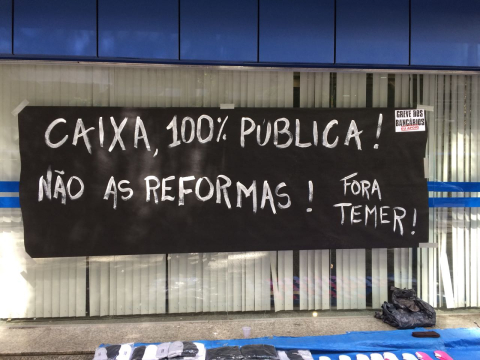 CAIXA, 100% PÚBLICA!
GREVE DOS
BANCÁRIOS
NÃO AS REFORMAS!
FORA
TEMER!